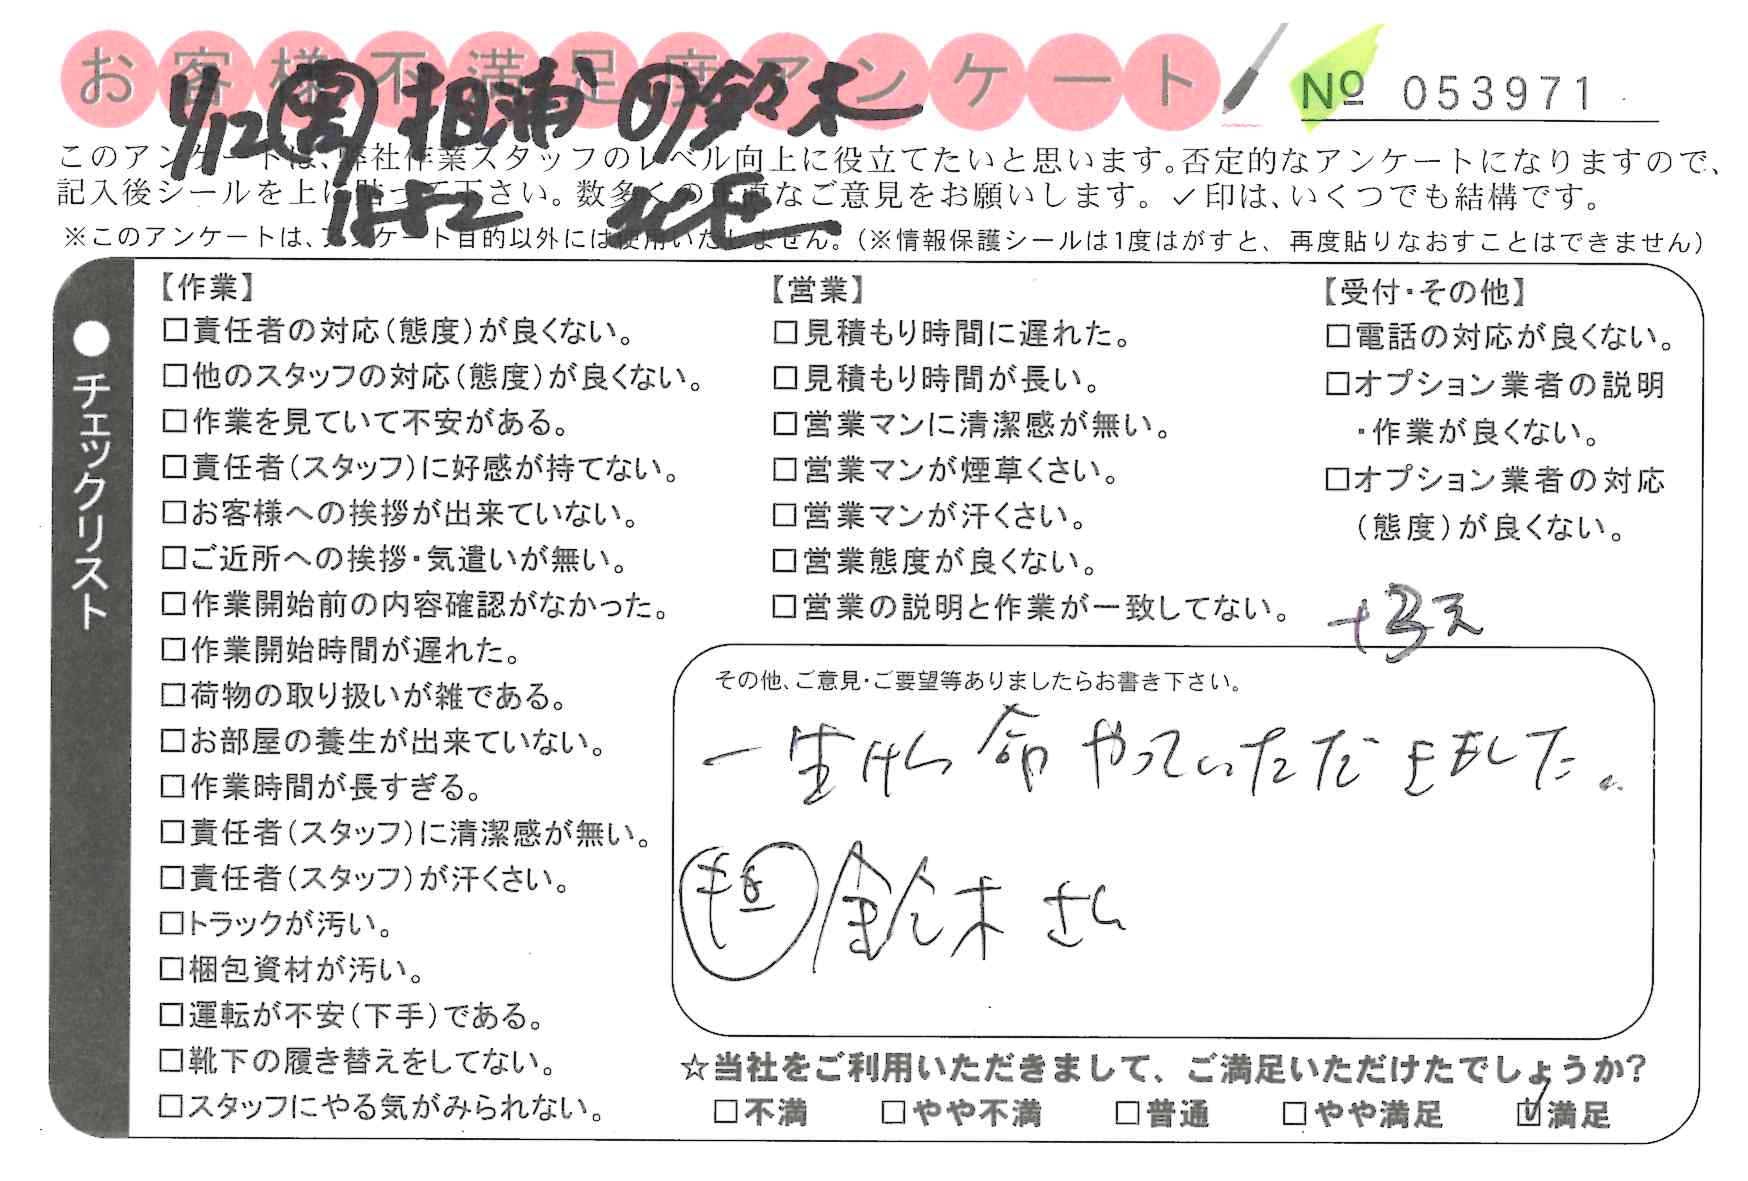 お客様不満足度アンケート
№ 053971
相浦 の鈴木
このアンケートは、弊社作業スタッフのレベル向上に役立てたいと思います。否定的なアンケートになりますので、
記入後シールを上に貼って下さい。数多くの正直なご意見をお願いします。✓印は、いくつでも結構です。
1852
※このアンケートは、アンケート目的以外には使用いたしません。(※情報保護シールは1度はがすと、再度貼りなおすことはできません)
●チェックリスト
【作業】
□責任者の対応(態度)が良くない。
□他のスタッフの対応(態度)が良くない。
□作業を見ていて不安がある。
□責任者(スタッフ)に好感が持てない。
□お客様への挨拶が出来ていない。
□ご近所への挨拶・気遣いが無い。
□作業開始前の内容確認がなかった。
□作業開始時間が遅れた。
□荷物の取り扱いが雑である。
□お部屋の養生が出来ていない。
□作業時間が長すぎる。
□責任者(スタッフ)に清潔感が無い。
□責任者(スタッフ)が汗くさい。
□トラックが汚い。
□梱包資材が汚い。
□運転が不安(下手)である。
□靴下の履き替えをしてない。
□スタッフにやる気がみられない。
【営業】
□見積もり時間に遅れた。
□見積もり時間が長い。
□営業マンに清潔感が無い。
□営業マンが煙草くさい。
□営業マンが汗くさい。
□営業態度が良くない。
□営業の説明と作業が一致してない。
【受付・その他】
□電話の対応が良くない。
□オプション業者の説明
・作業が良くない。
□オプション業者の対応
(態度)が良くない。
+3点
その他、ご意見・ご要望等ありましたらお書き下さい。
一生けん命やっていただきました。
鈴木さん
☆当社をご利用いただきまして、ご満足いただけたでしょうか?
□不満 □やや不満 □普通 □やや満足 ☑満足